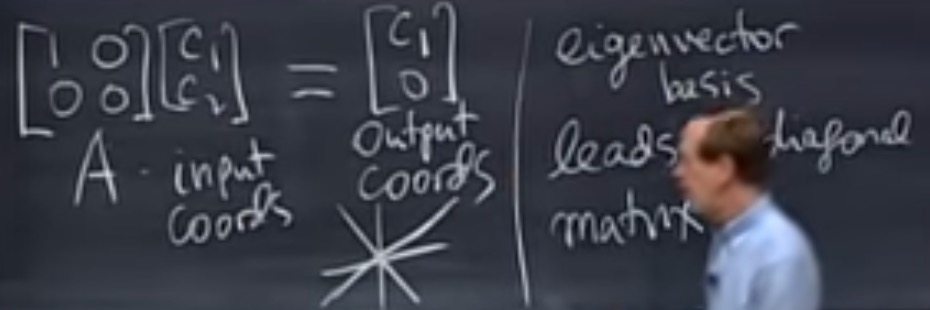 [1 0
0 0] [c₁
c₂] = [c₁
0]
A · input
coords
output
coords
eigenvector
basis
leads
matrix